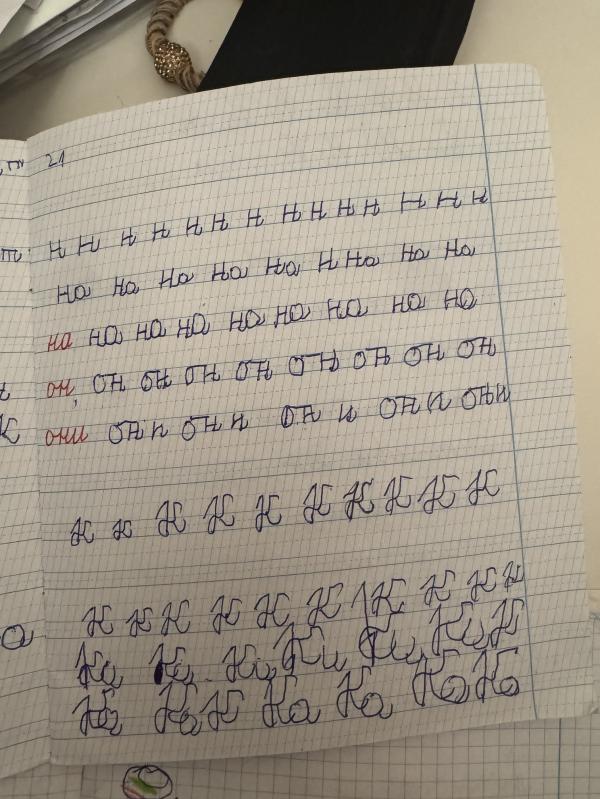 21
н н н н н н н н н н н н н н
на на на на на н на на на
на на на на на на на на на
он, он он он он он он он он
они они они они они они
к к к к к к к к к к
к к к к к к к к к к
Ка Ки Ки Ки Ки Ки К
Ка Ка К Ка Ка Ка Ка